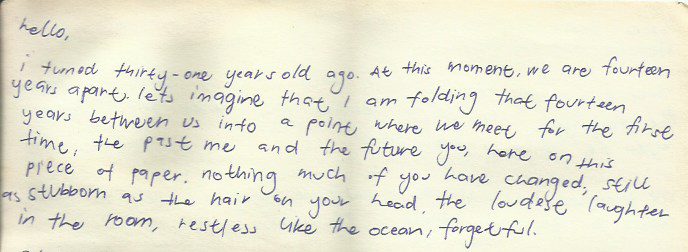 hello,
i turned thirty-one years old ago. At this moment, we are fourteen
years apart. lets imagine that I am folding that fourteen
years between us into a point where we meet for the first
time, the past me and the future you, here on this
piece of paper. nothing much of you have changed, still
as stubborn as the hair on your head, the loudest laughter
in the room, restless like the ocean, forgetful.